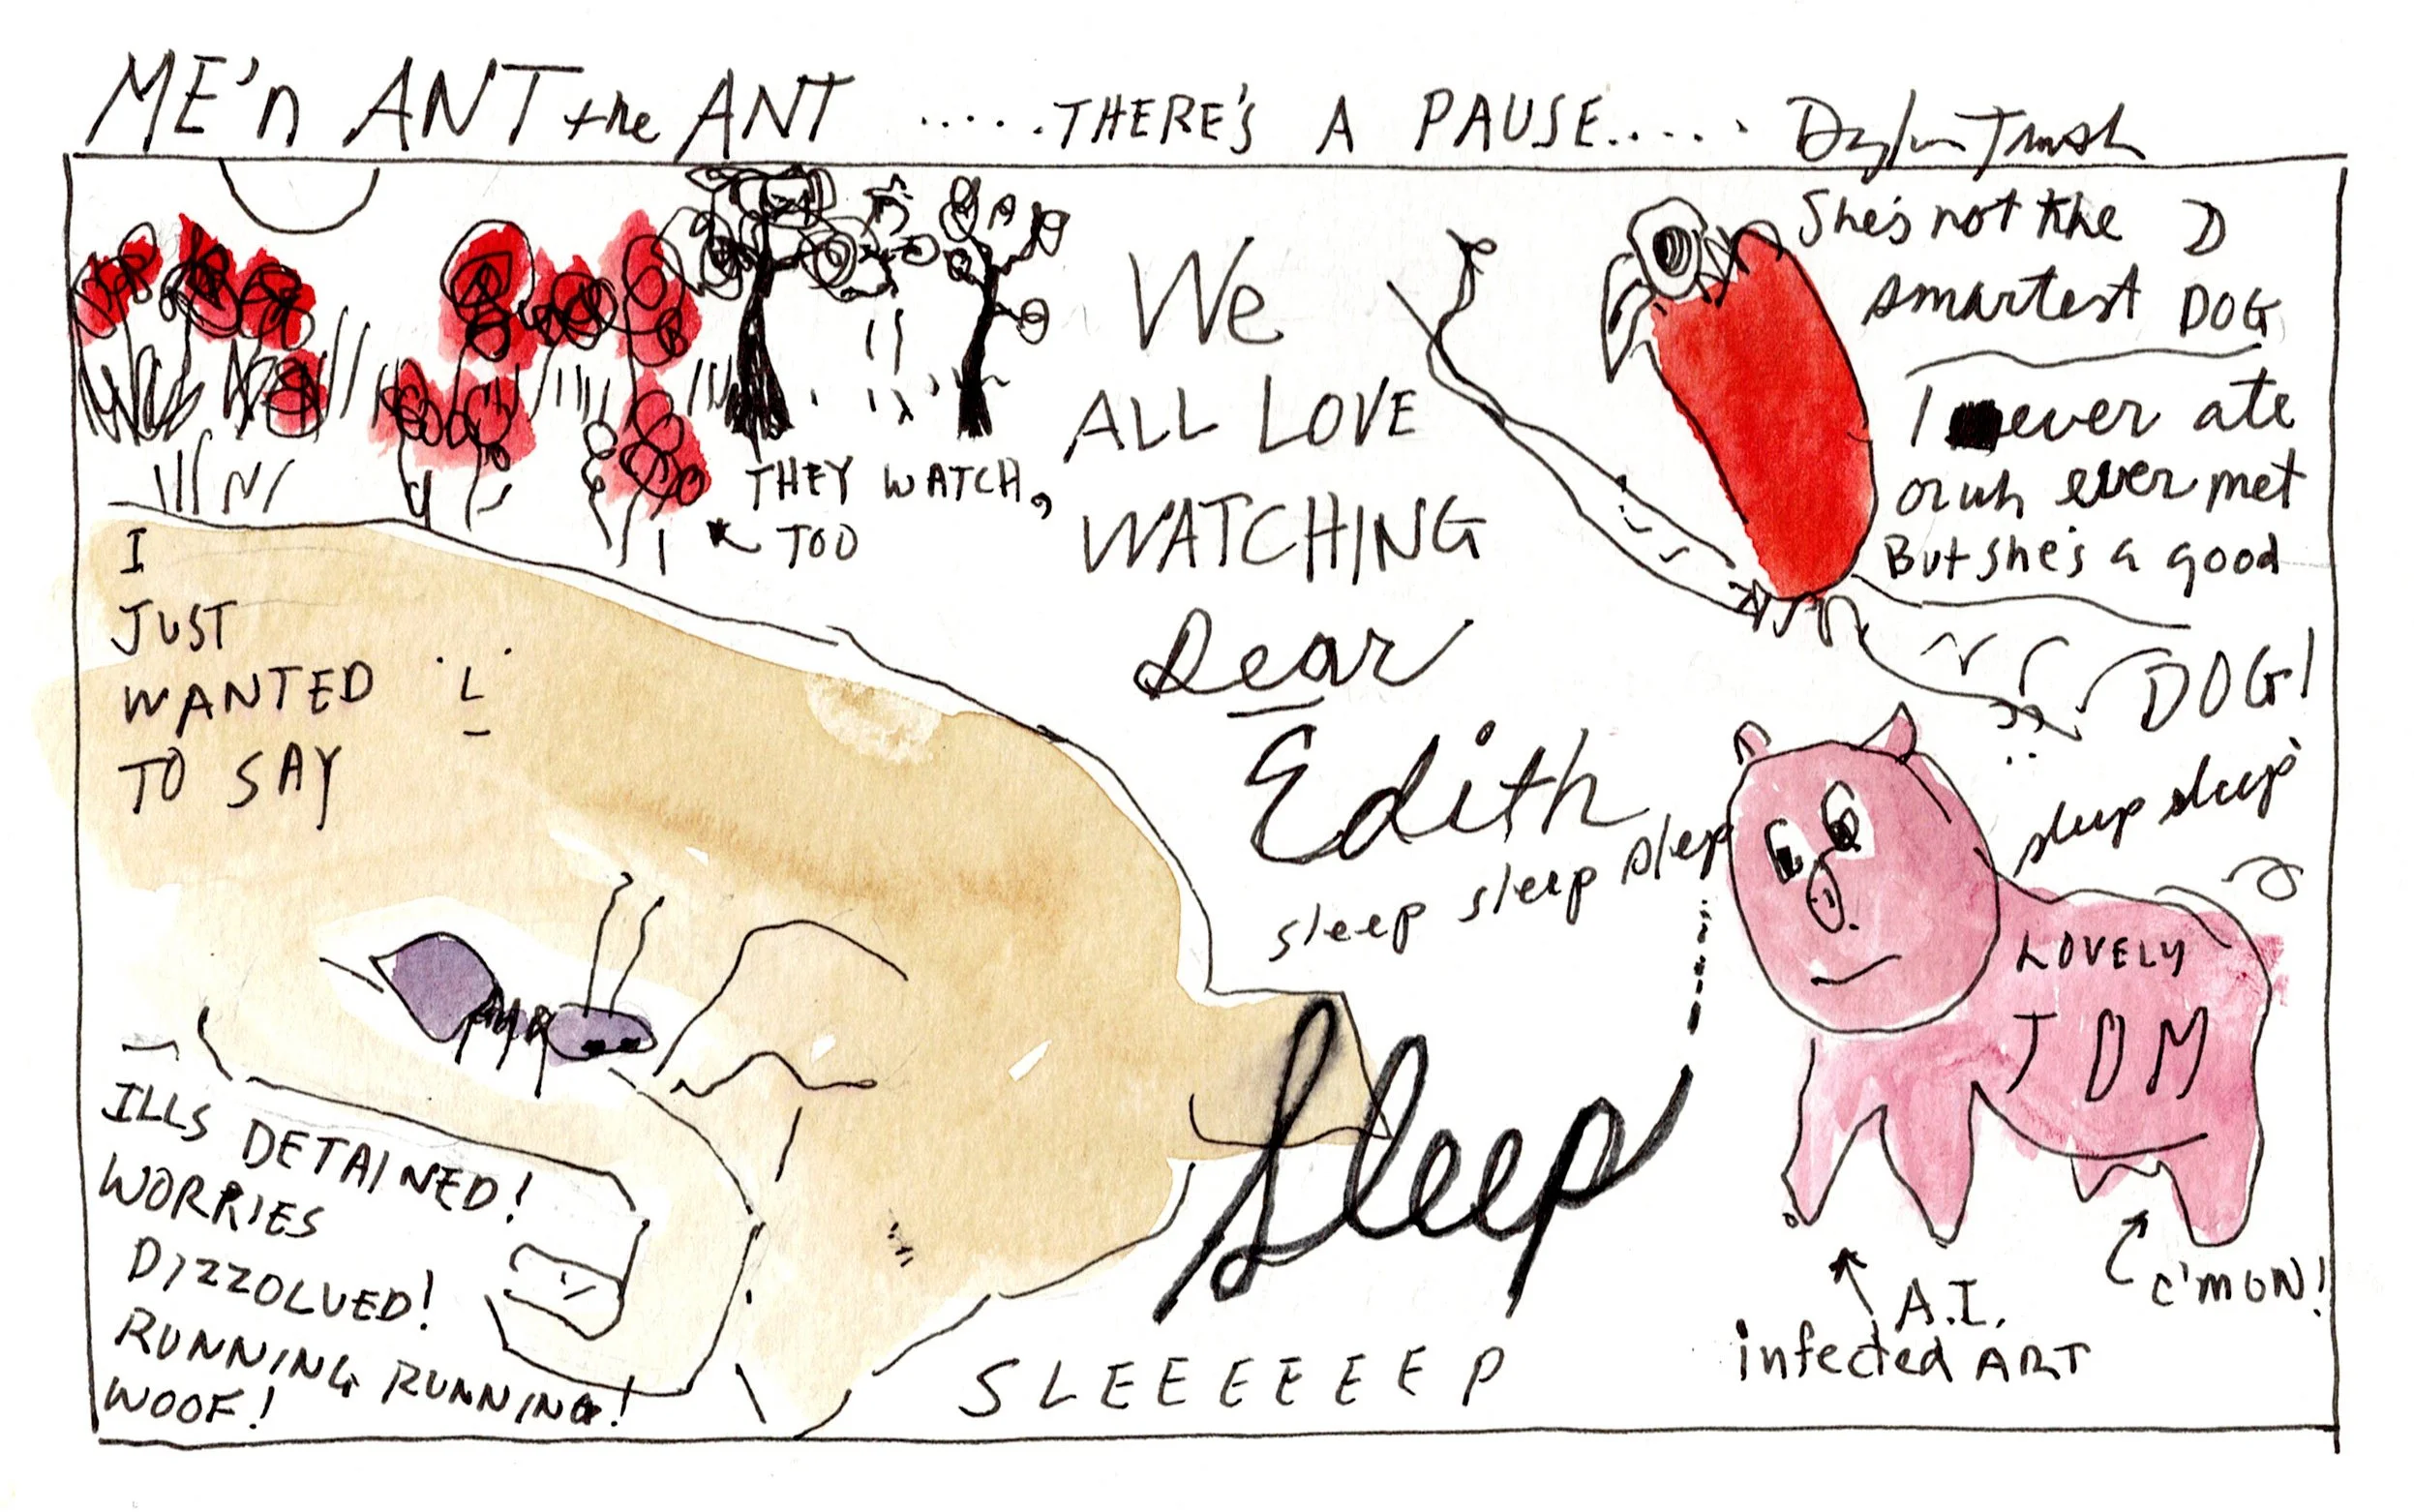 ME'n ANT the ANT .....THERE'S A PAUSE.....
THEY WATCH,
TOO
We
ALL LOVE
WATCHING
Dear
Edith
sleep sleep sleep
Sleep
SLEEEEEEP
She's not the
smartest DOG
I ever ate
or uh ever met
But she's a good
DOG!
sleep sleep
LOVELY
TOM
C'MON!
A.I.
infected ART
I
JUST
WANTED
TO SAY
ILLS DETAINED!
WORRIES
DIZZOLVED!
RUNNING RUNNING!
WOOF!